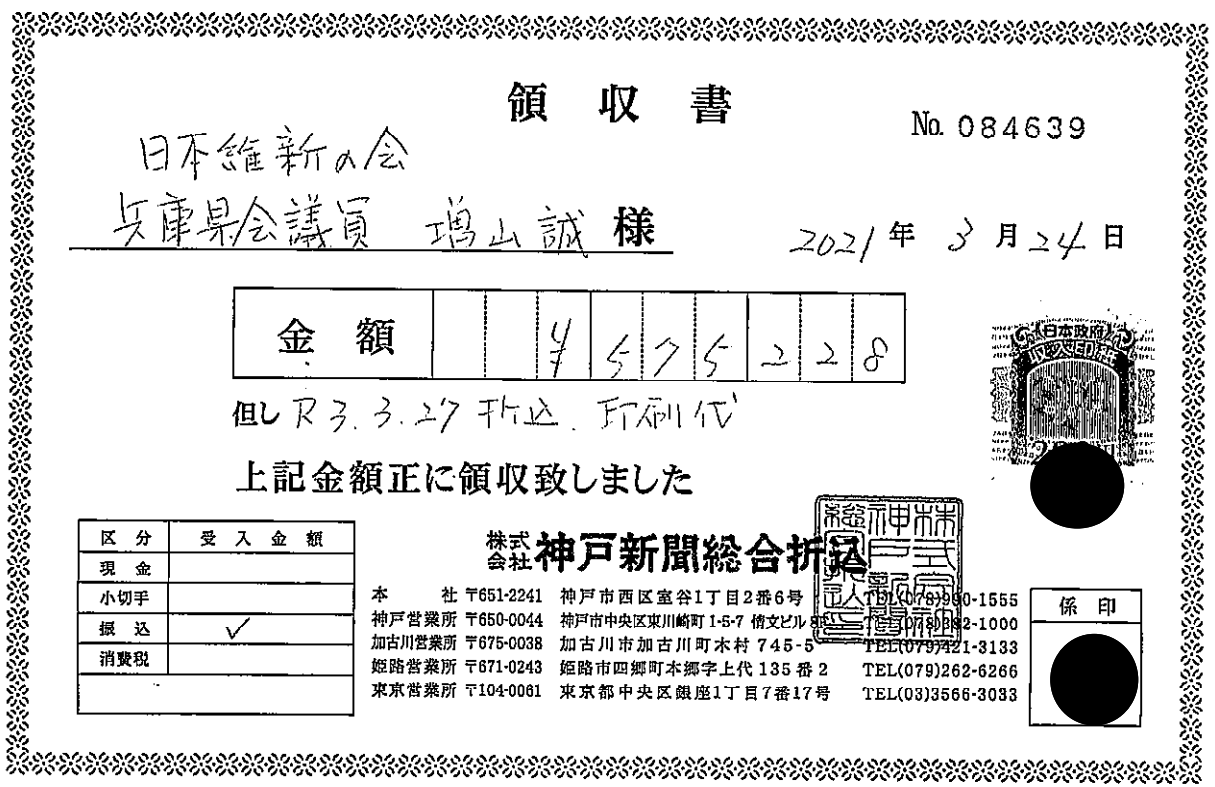 領収書
No. 084639
日本維新の会
兵庫県会議員 増山誠 様
2021年 3月 24日
金額 ¥575228
但し R3.3.27 折込、印刷代
上記金額正に領収致しました
日本政府
収入印紙
区分 受入金額
現金
小切手
振込 ✓
消費税
株式会社 神戸新聞総合折込
本社 〒651-2241 神戸市西区室谷1丁目2番6号 TEL(078)990-1555
神戸営業所 〒650-0044 神戸市中央区東川崎町1-5-7 情文ビル TEL(078)382-1000
加古川営業所 〒675-0038 加古川市加古川町木村745-5 TEL(079)421-3133
姫路営業所 〒671-0243 姫路市四郷町本郷字上代135番2 TEL(079)262-6266
東京営業所 〒104-0061 東京都中央区銀座1丁目7番17号 TEL(03)3566-3033
係印